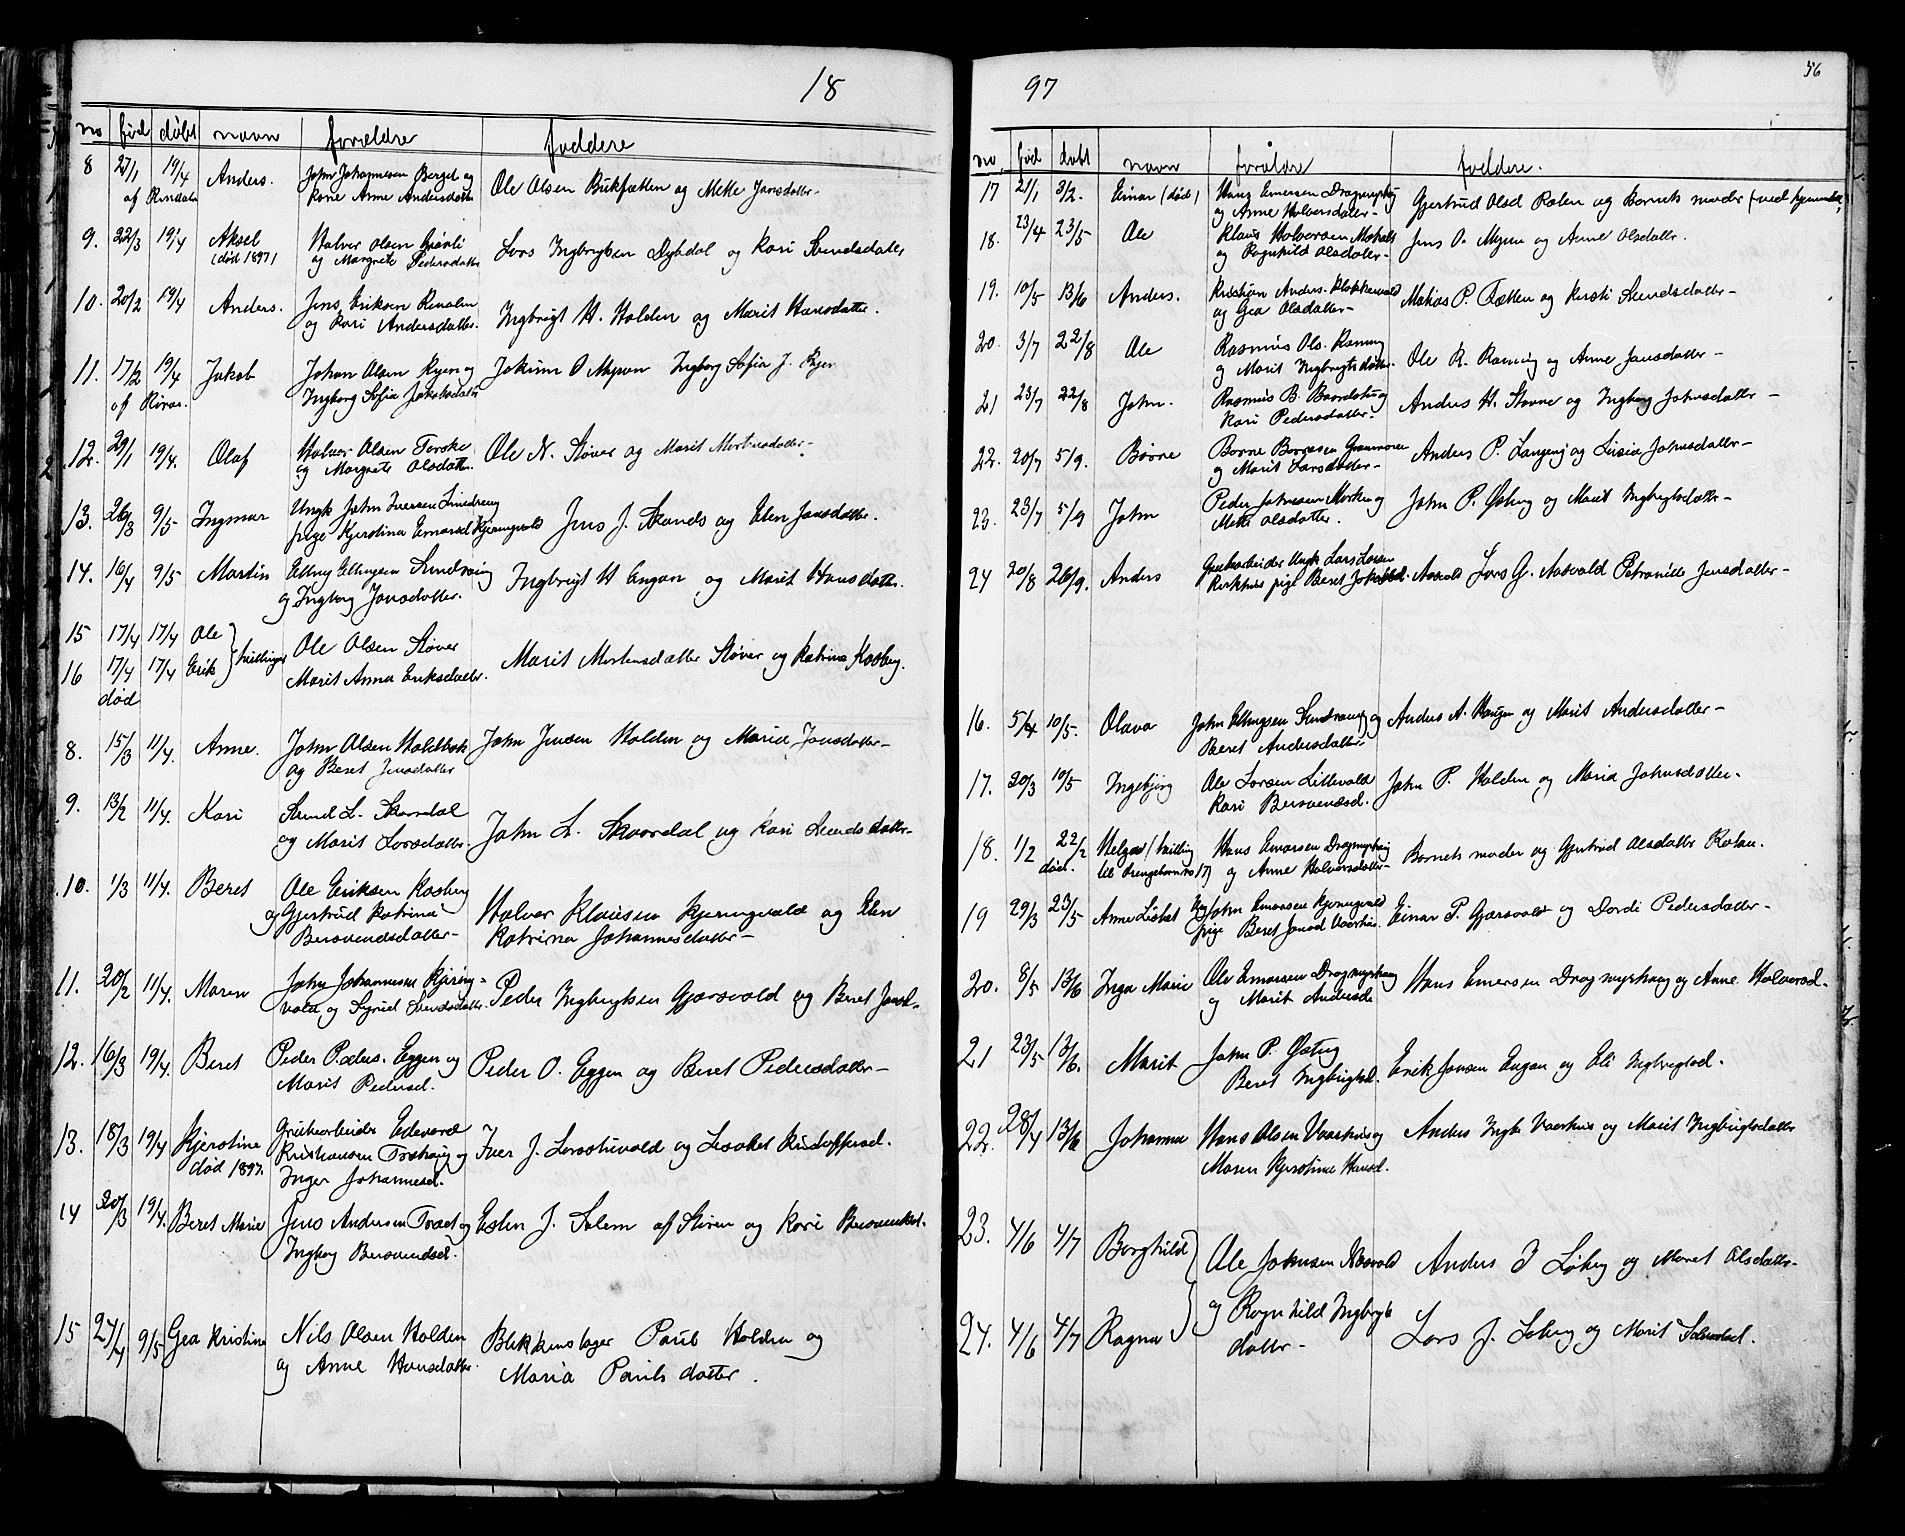 18
no født döbt navn forældre faddere
8 27/1 19/4 Anders. John Johannesen Berget og
af Rindaln Kari Anne Andersdatter Ole Olsen Bukfætten og Mette Jansdatter-
9. 22/3 19/4 Aksel Halver Olsen
(død 1897) og Margrete Pedersdatter Lars Ingbrigtsen Dyhdal og Kari Svendsdatter
10. 20/2 19/4 Anders. Jens Eriksen
og Kari Andersdatter. Ingbrigt H. Holden og Marit Hansdatter.
11. 17/2 19/4 Jakob Johan Olsen Ryen og Jokum O Myren Ingborg Sofia J. Ryen
af Røros. Ingborg Sofia Jakobsdatter
12. 29/1 19/4. Olaf Halver Olsen Torske Ole N. Støver og Marit Mortensdatter-
og Margrete Olsdatter
13. 26/3 9/5 Ingmar Ungk John Iversen
pige Kjerstina Einarsd Kjeringvold Jens J. Skands og Elen Jansdatter.
14. 16/4 9/5 Martin Elling Ellingsen
og Ingborg Jansdatter. Ingbrigt H Engan og Marit Hansdatter.
15 17/4 17/4 Ole } tvillinger Ole Olsen Støver
16 17/4 17/4 Erik Marit Anna Eriksdatter. Marit Mortensdatter Støver og Katrina Kosberg.
død
8. 15/3 11/4. Anne. John Olsen Holdbak John Jensen Holden og Maria Jansdatter-
og Beret Jensdatter
9. 13/2 11/4. Kari Svend L. Skardal
og Marit Larsdatter. John L. Skaardal og Kari Svendsdatter-
10. 1/3 11/4. Beret Ole Eriksen Kosberg
og Gjertrud Katrina Halvor Klausen Kjeringvold og Elen
Bersvendsdatter- Katrina Johannesdatter-
11. 20/2 11/4. Maren John Johannesen Kjering-
vold og Sigrid Svendsdatter. Peder Ingbrigtsen Gjærsvold og Beret Jansd-
12. 16/3 19/4. Beret Peder Peders. Eggen og Peder O. Eggen og Beret Pedersdatter-
Marit Pedersd.
13. 18/3 19/4 Kjerstine Grubearbeider Edevard
død 1897. Kristiansen og Iver J. og
Inger Johannesd.
14 20/3 19/4. Beret Marie Jens Andersen og Esten J. Salem af og Kari Bersvendsd.
Ingborg Bersvendsd.
15 24/4 9/5 Gea Kristine Nils Olsen Holden Blikkenslager Paul Holden og
og Anne Hansdatter. Maria Paulsdatter.
97
56
no. født døbt navn forældre faddere.
17 21/1 3/2. Einar (død) Hans Einersen Dragmyrhaug
og Anne Halversdatter- Gjertrud Olsd Rølen og Barnets moder
18. 23/4 23/5 Ole Klaus Halvorsen
og Ragnhild Olsdatter- Jens O. Myren og Anne Olsdatter.
19. 10/5 13/6 Anders. Kristian Anders.
og Gea Olsdatter- Matias P. Tætten og Kirsti Svendsdatter-
20. 3/7 22/8 Ole Rasmus Ols. Ramsøy
og Marit Ingbrigtsdatter. Ole R. Ramsøy og Anne Jansdatter-
21 23/7 22/8 John. Rasmus B. og
Kari Pedersdatter- Anders H. Stovne og Ingborg Johnsdatter-
22. 20/7 5/9. Børre Børre Børresen Granmoren
og Marit Larsdatter- Anders P. Langeng og Lisia Johnsdatter-
23. 23/7 5/9 John Peder Johnsen Morken og
Mette Olsdatter. John P. Østeng og Marit Ingbrigtsdatter-
24 20/8 26/9. Anders Grubearbeider Ungk Lars Larsen
pige Beret Aasvold Lars G. Aasvold Petronille Jensdatter-
16. 5/4 10/5. Olava John Ellingsen og Anders A. Haugen og Marit Andersdatter-
Beret Andersdatter-
17. 20/3 10/5 Ingebjørg Ole Larsen Littevold
Kari Bersvendsd. John P. Holden og Maria Johnsdatter-
18. 1/2 22/2 Helga (tvilling Hans Einarsen Dragmyrhaug
død. til Drengebarn no 17) og Anne Halvorsdatter- Barnets moder og Gjertrud Olsdatter Rølen.
19 29/3 23/5 Anne Lisbet Ungk John Einarsen Kjeringvold
pige Beret Jansd Vaarhus. Einar P. Gjærsvold og Dordi Pedersdatter-
20. 8/5 13/6 Inga Marie Ole Einarsen Dragmyrhaug
og Marit Andersd. Hans Einersen Dragmyrhaug og Anne Halvorsd.
21 23/5 13/6. Marit John P. Østeng
Beret Ingbrigtsd. Erik Jansen Engan og Eli Ingbrigtsd.
22. 28/4 13/6 Johanna Hans Olsen Vaarhus og
Maren Kjerstine Hansd. Anders Ingbr Vaarhus og Marit Ingbrigtsdatter
23. 4/6 4/7 Borghild Ole Johnsen Næsvold Anders J Løberg og Maret Olsdatter-
24. 4/6 4/7 Ragna og Ragnhild Ingbrigts
datter- Lars J. Løberg og Marit